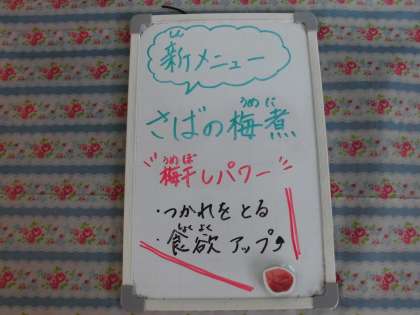 新メニュー
さばの梅煮
うめに
梅干しパワー
うめぼ
・つかれをとる
・食欲アップ
しょくよく